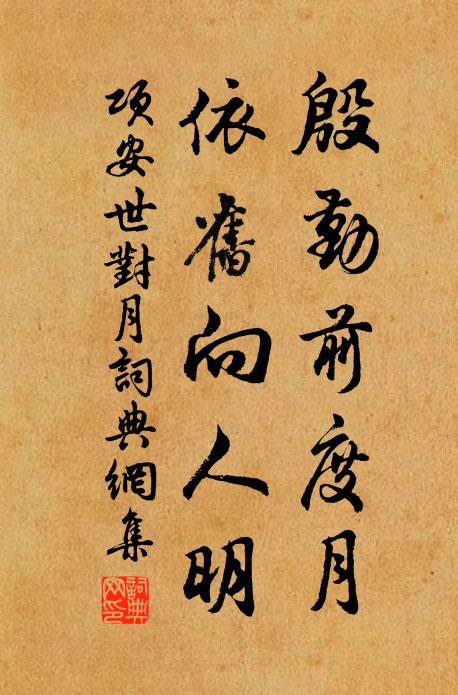 殷勤前度月
依舊向人明
項安世對月詞典網集
詞典網印